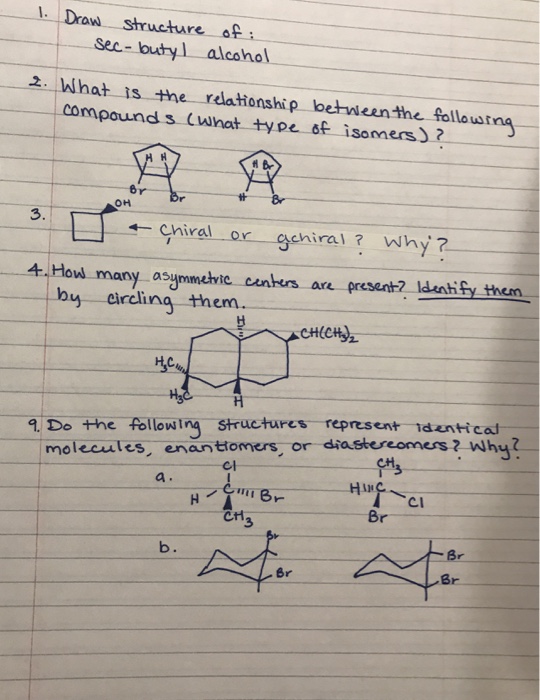 1. Draw structure of:
sec-butyl alcohol
2. What is the relationship between the following
compounds (what type of isomers)?
H H
H Br
Br Br
H Br
3. OH
← chiral or achiral? Why?
4. How many asymmetric centers are present? Identify them
by circling them.
H
CH(CH3)2
H3C
H3C H
9. Do the following structures represent identical
molecules, enantiomers, or diastereomers? Why?
a. Cl CH3
H C Br H C Cl
CH3 Br
b. Br Br
Br Br